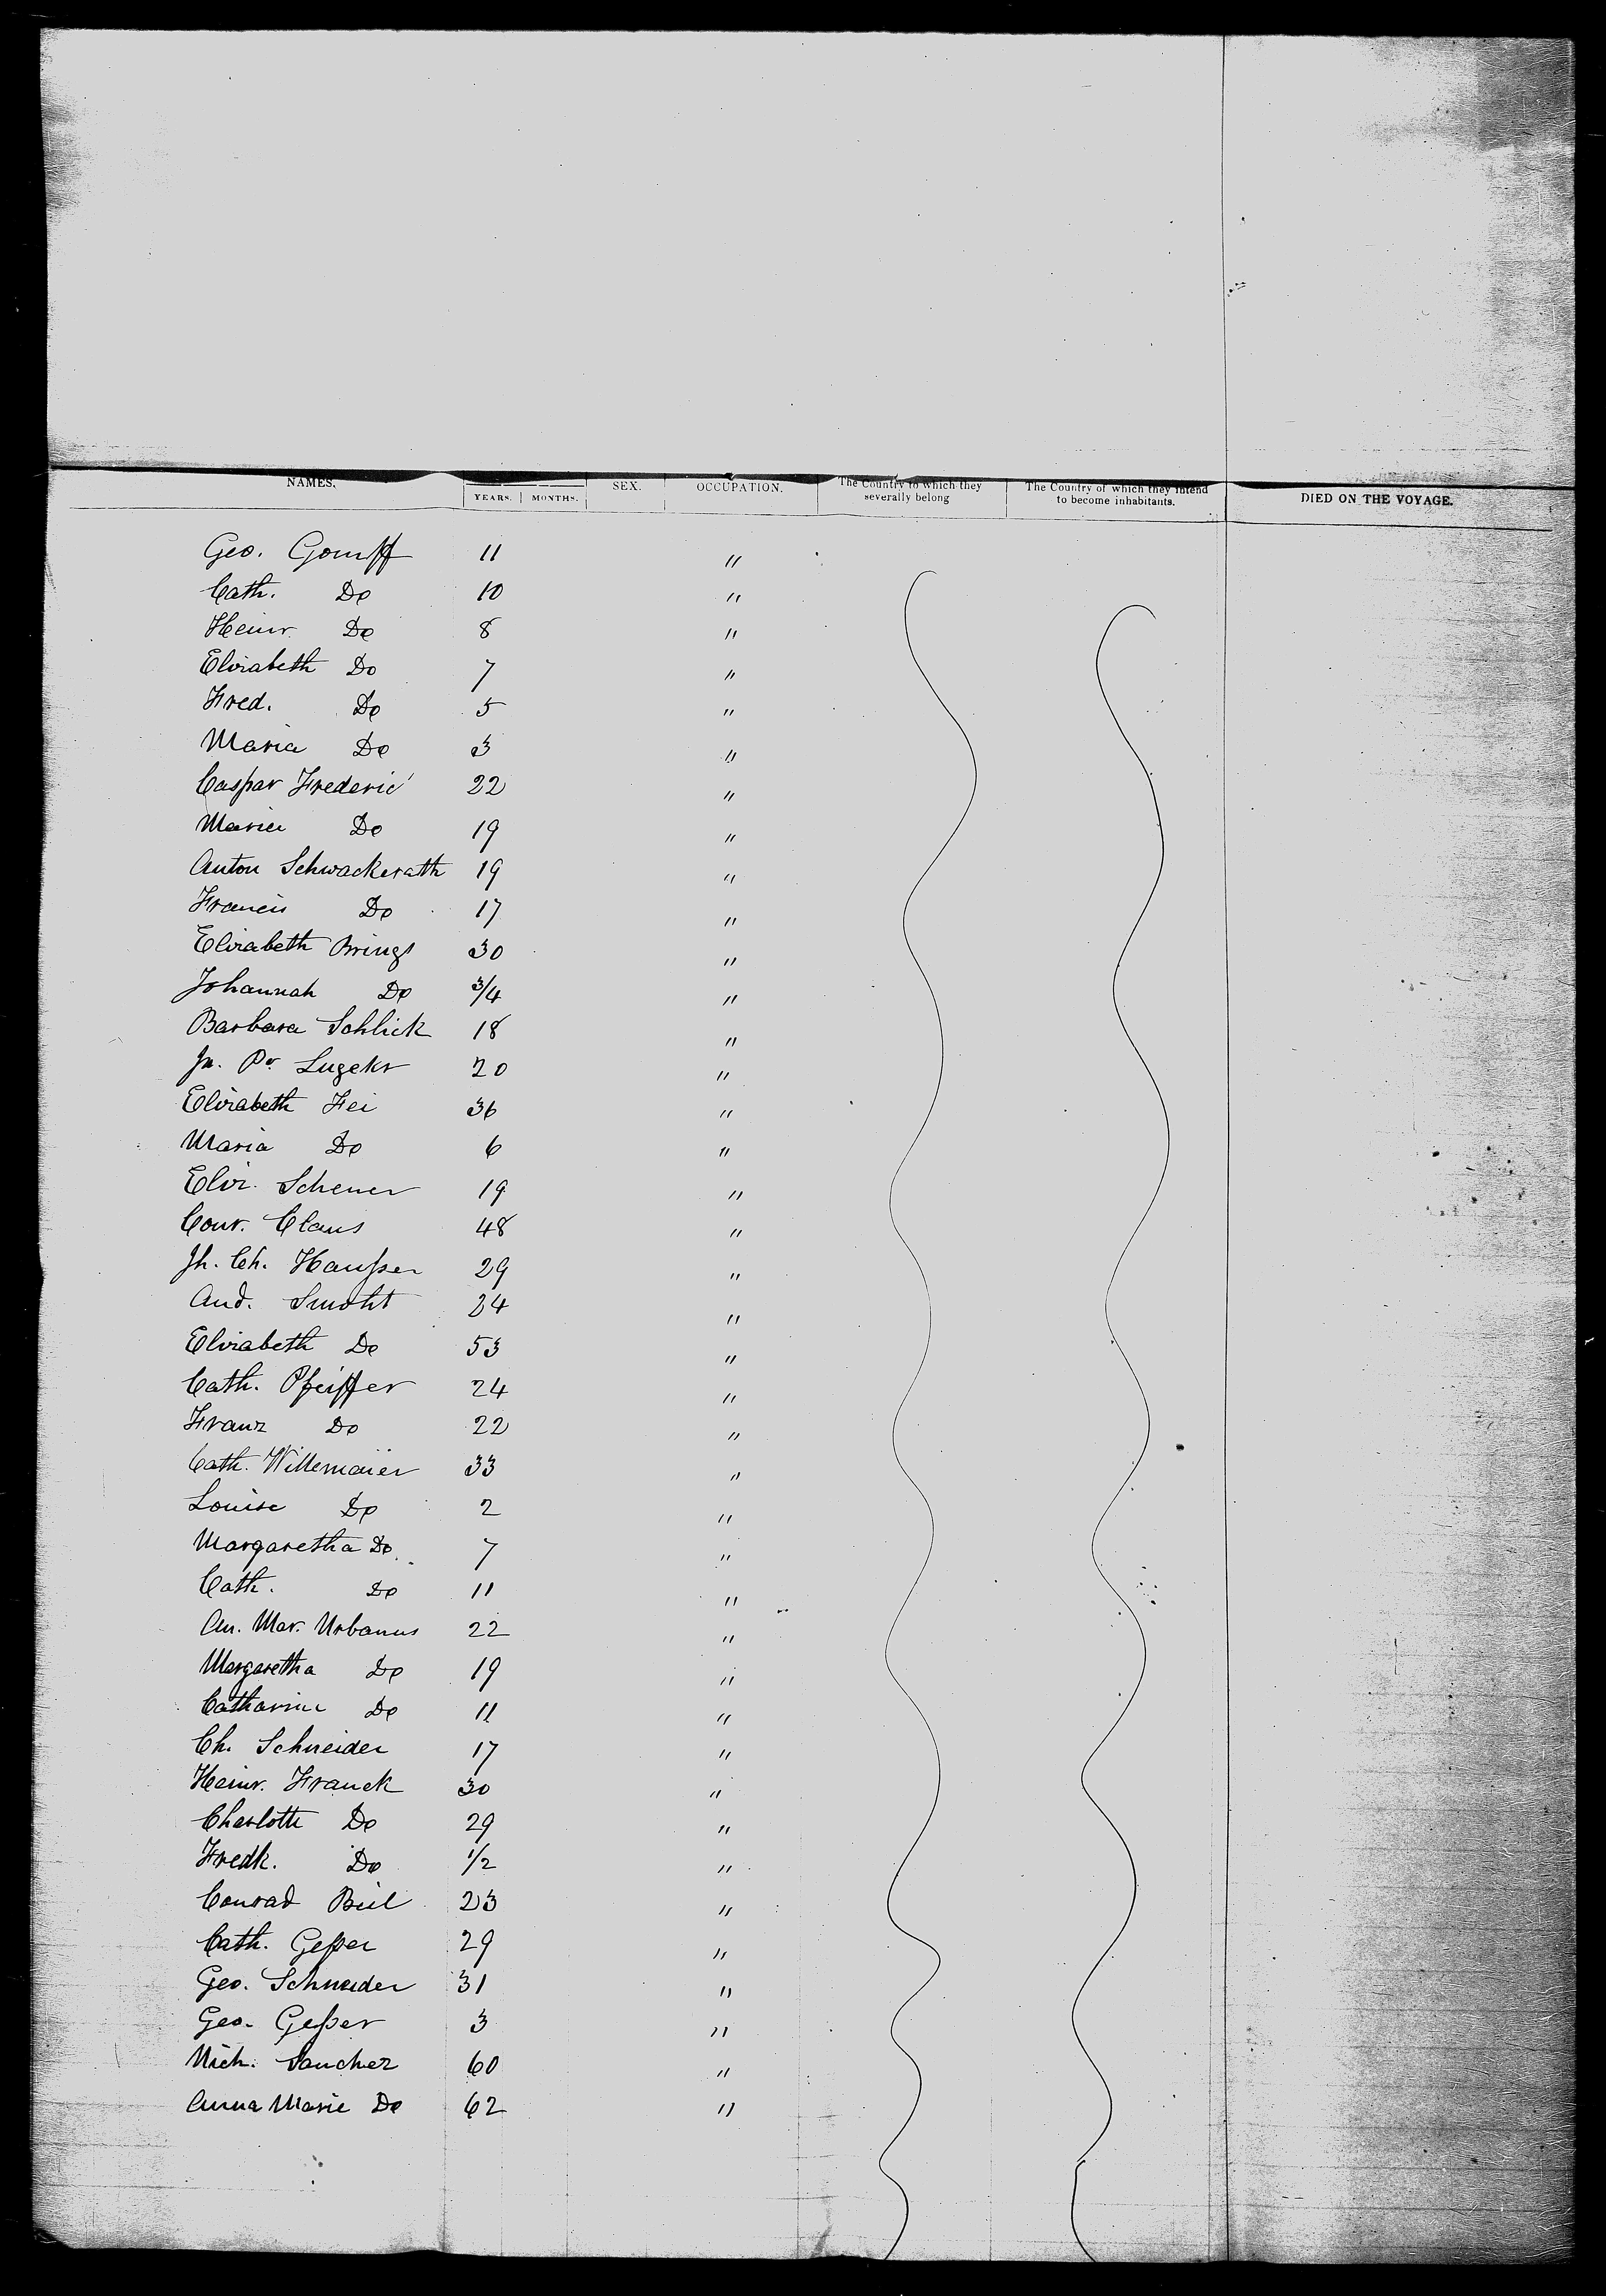 NAMES. YEARS. MONTHS. SEX. OCCUPATION. The Country to which they severally belong The Country of which they intend to become inhabitants. DIED ON THE VOYAGE.
Geo. Gomff 11 "
Cath. Do 10 "
Heinr. Do 8 "
Elizabeth Do 7 "
Fred. Do 5 "
Maria Do 3 "
Caspar Frederic 22 "
Maria Do 19 "
Anton Schwackerath 19 "
Francis Do 17 "
Elizabeth Brings 30 "
Johannah Do 3/4 "
Barbara Schlick 18 "
Jn. Pr Lugekr 20 "
Elizabeth Fei 36 "
Maria Do 6 "
Eliz. Scheuer 19 "
Conr. Claus 48 "
Jh. Ch. Hausser 29 "
And. Smoht 24 "
Elizabeth Do 53 "
Cath. Pfeiffer 24 "
Franz Do 22 "
Cath. Willemaier 33 "
Louise Do 2 "
Margaretha Do 7 "
Cath. Do 11 "
An. Mar. Urbanus 22 "
Margaretha Do 19 "
Catharine Do 11 "
Ch. Schneider 17 "
Heinr. Franck 30 "
Charlotte Do 29 "
Fredk. Do 1/2 "
Conrad Biel 23 "
Cath. Gesser 29 "
Geo. Schneider 31 "
Geo. Gesser 3 "
Mich. Sancher 60 "
Anna Marie Do 62 "